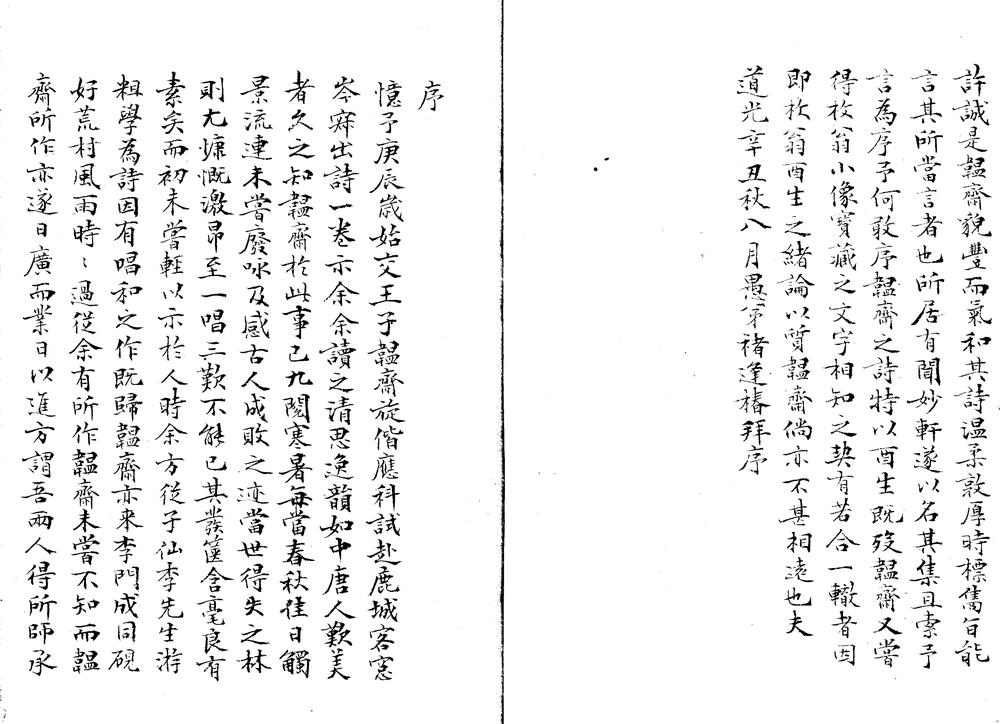 許誠是韞齋貌豐而氣和其詩温柔敦厚時標雋旨能
言其所當言者也所居有聞妙軒遂以名其集且索予
言為序予何敢序韞齋之詩特以酉生既歿韞齋又嘗
得枚翁小像寶藏之文字相知之契有若合一轍者因
即枚翁酉生之緒論以質韞齋倘亦不甚相遠也夫
道光辛丑秋八月愚弟褚逢椿拜序
序
憶予庚辰歲始交王子韞齋旋偕應科試赴鹿城客窓
岑寂出詩一卷示余余讀之清思逸韻如中唐人歎美
者久之知韞齋於此事已九閱寒暑每當春秋佳日觸
景流連未嘗廢咏及感古人成敗之迹當世得失之林
則尤慷慨激昂至一唱三歎不能已其發篋含毫良有
素矣而初未嘗輕以示於人時余方從子仙李先生游
粗學為詩因有唱和之作既歸韞齋亦来李門成同硯
好荒村風雨時〻過從余有所作韞齋未嘗不知而韞
齋所作亦遂日廣而業日以進方謂吾兩人得所師承